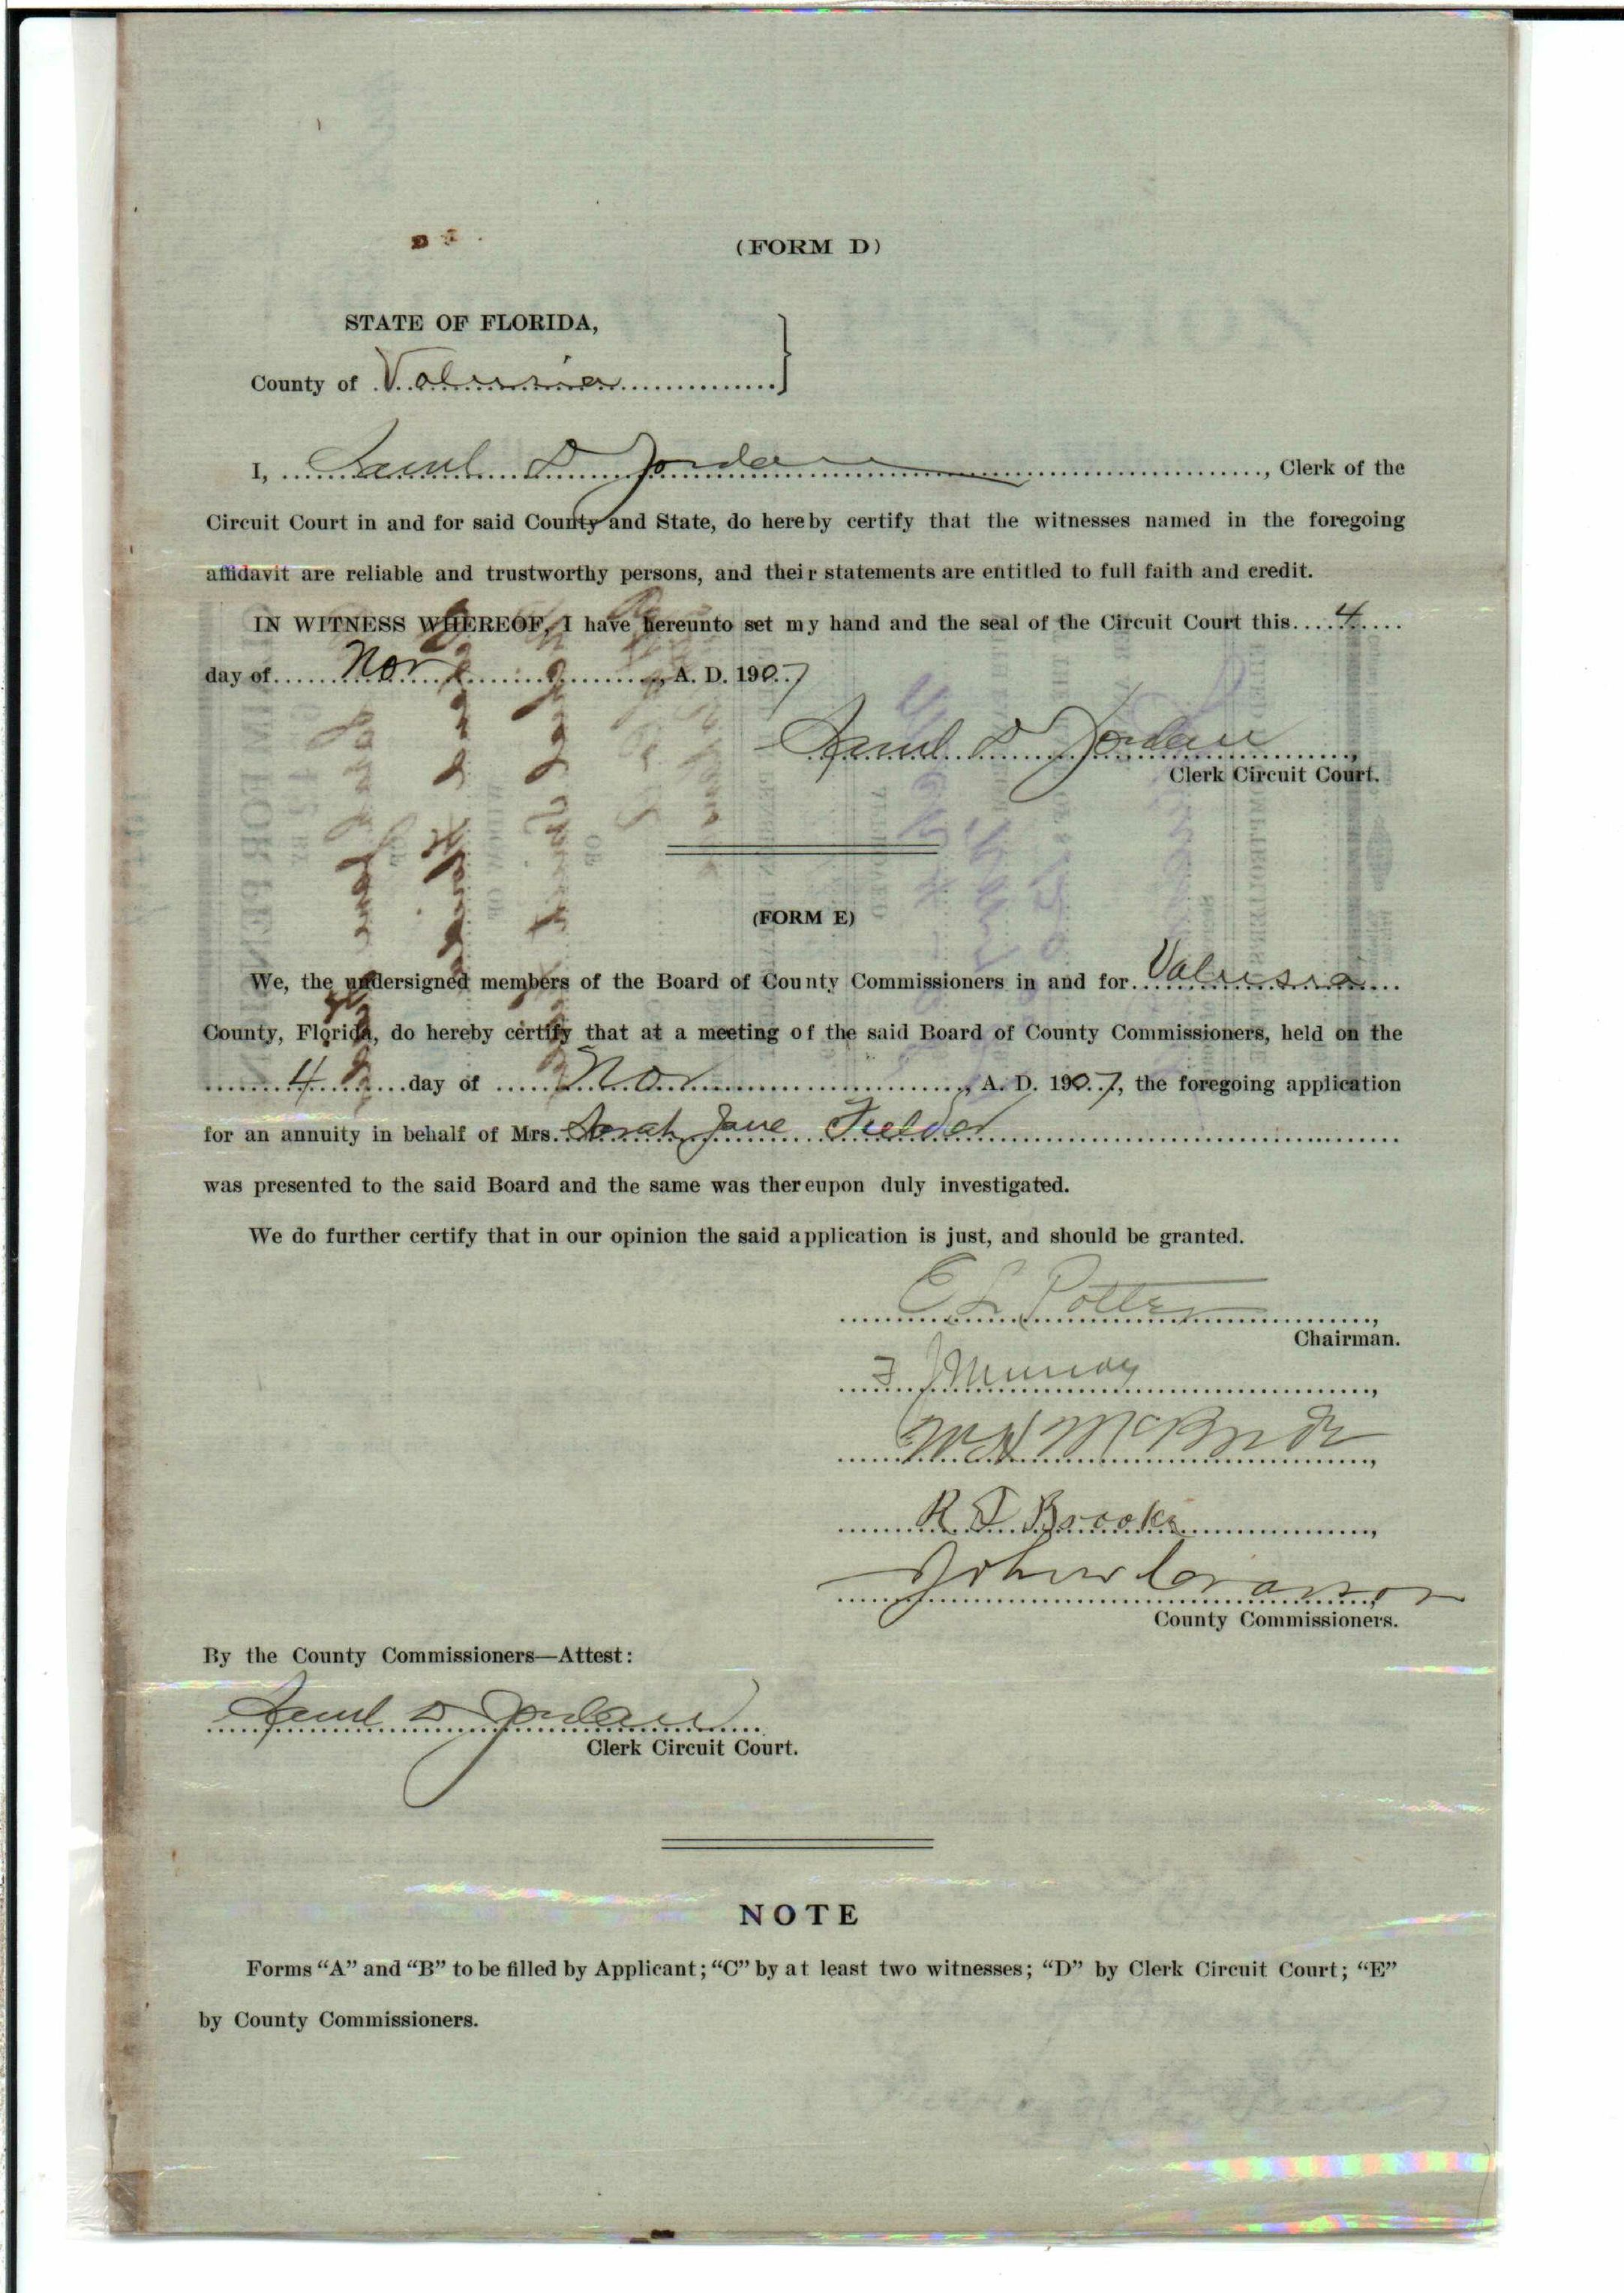 (FORM D)
STATE OF FLORIDA,
County of Volusia
I, Saml D Jordan, Clerk of the
Circuit Court in and for said County and State, do hereby certify that the witnesses named in the foregoing
affidavit are reliable and trustworthy persons, and their statements are entitled to full faith and credit.
IN WITNESS WHEREOF, I have hereunto set my hand and the seal of the Circuit Court this 4
day of Nov, A. D. 1907
Saml D Jordan,
Clerk Circuit Court.
(FORM E)
We, the undersigned members of the Board of County Commissioners in and for Volusia
County, Florida, do hereby certify that at a meeting of the said Board of County Commissioners, held on the
4 day of Nov, A. D. 1907, the foregoing application
for an annuity in behalf of Mrs. Sarah Jane Fielder
was presented to the said Board and the same was thereupon duly investigated.
We do further certify that in our opinion the said application is just, and should be granted.
E L Potter,
Chairman.
F J Murray,
W H McBride,
R T Brooks,
John W
County Commissioners.
By the County Commissioners—Attest:
Saml D Jordan
Clerk Circuit Court.
NOTE
Forms "A" and "B" to be filled by Applicant; "C" by at least two witnesses; "D" by Clerk Circuit Court; "E"
by County Commissioners.